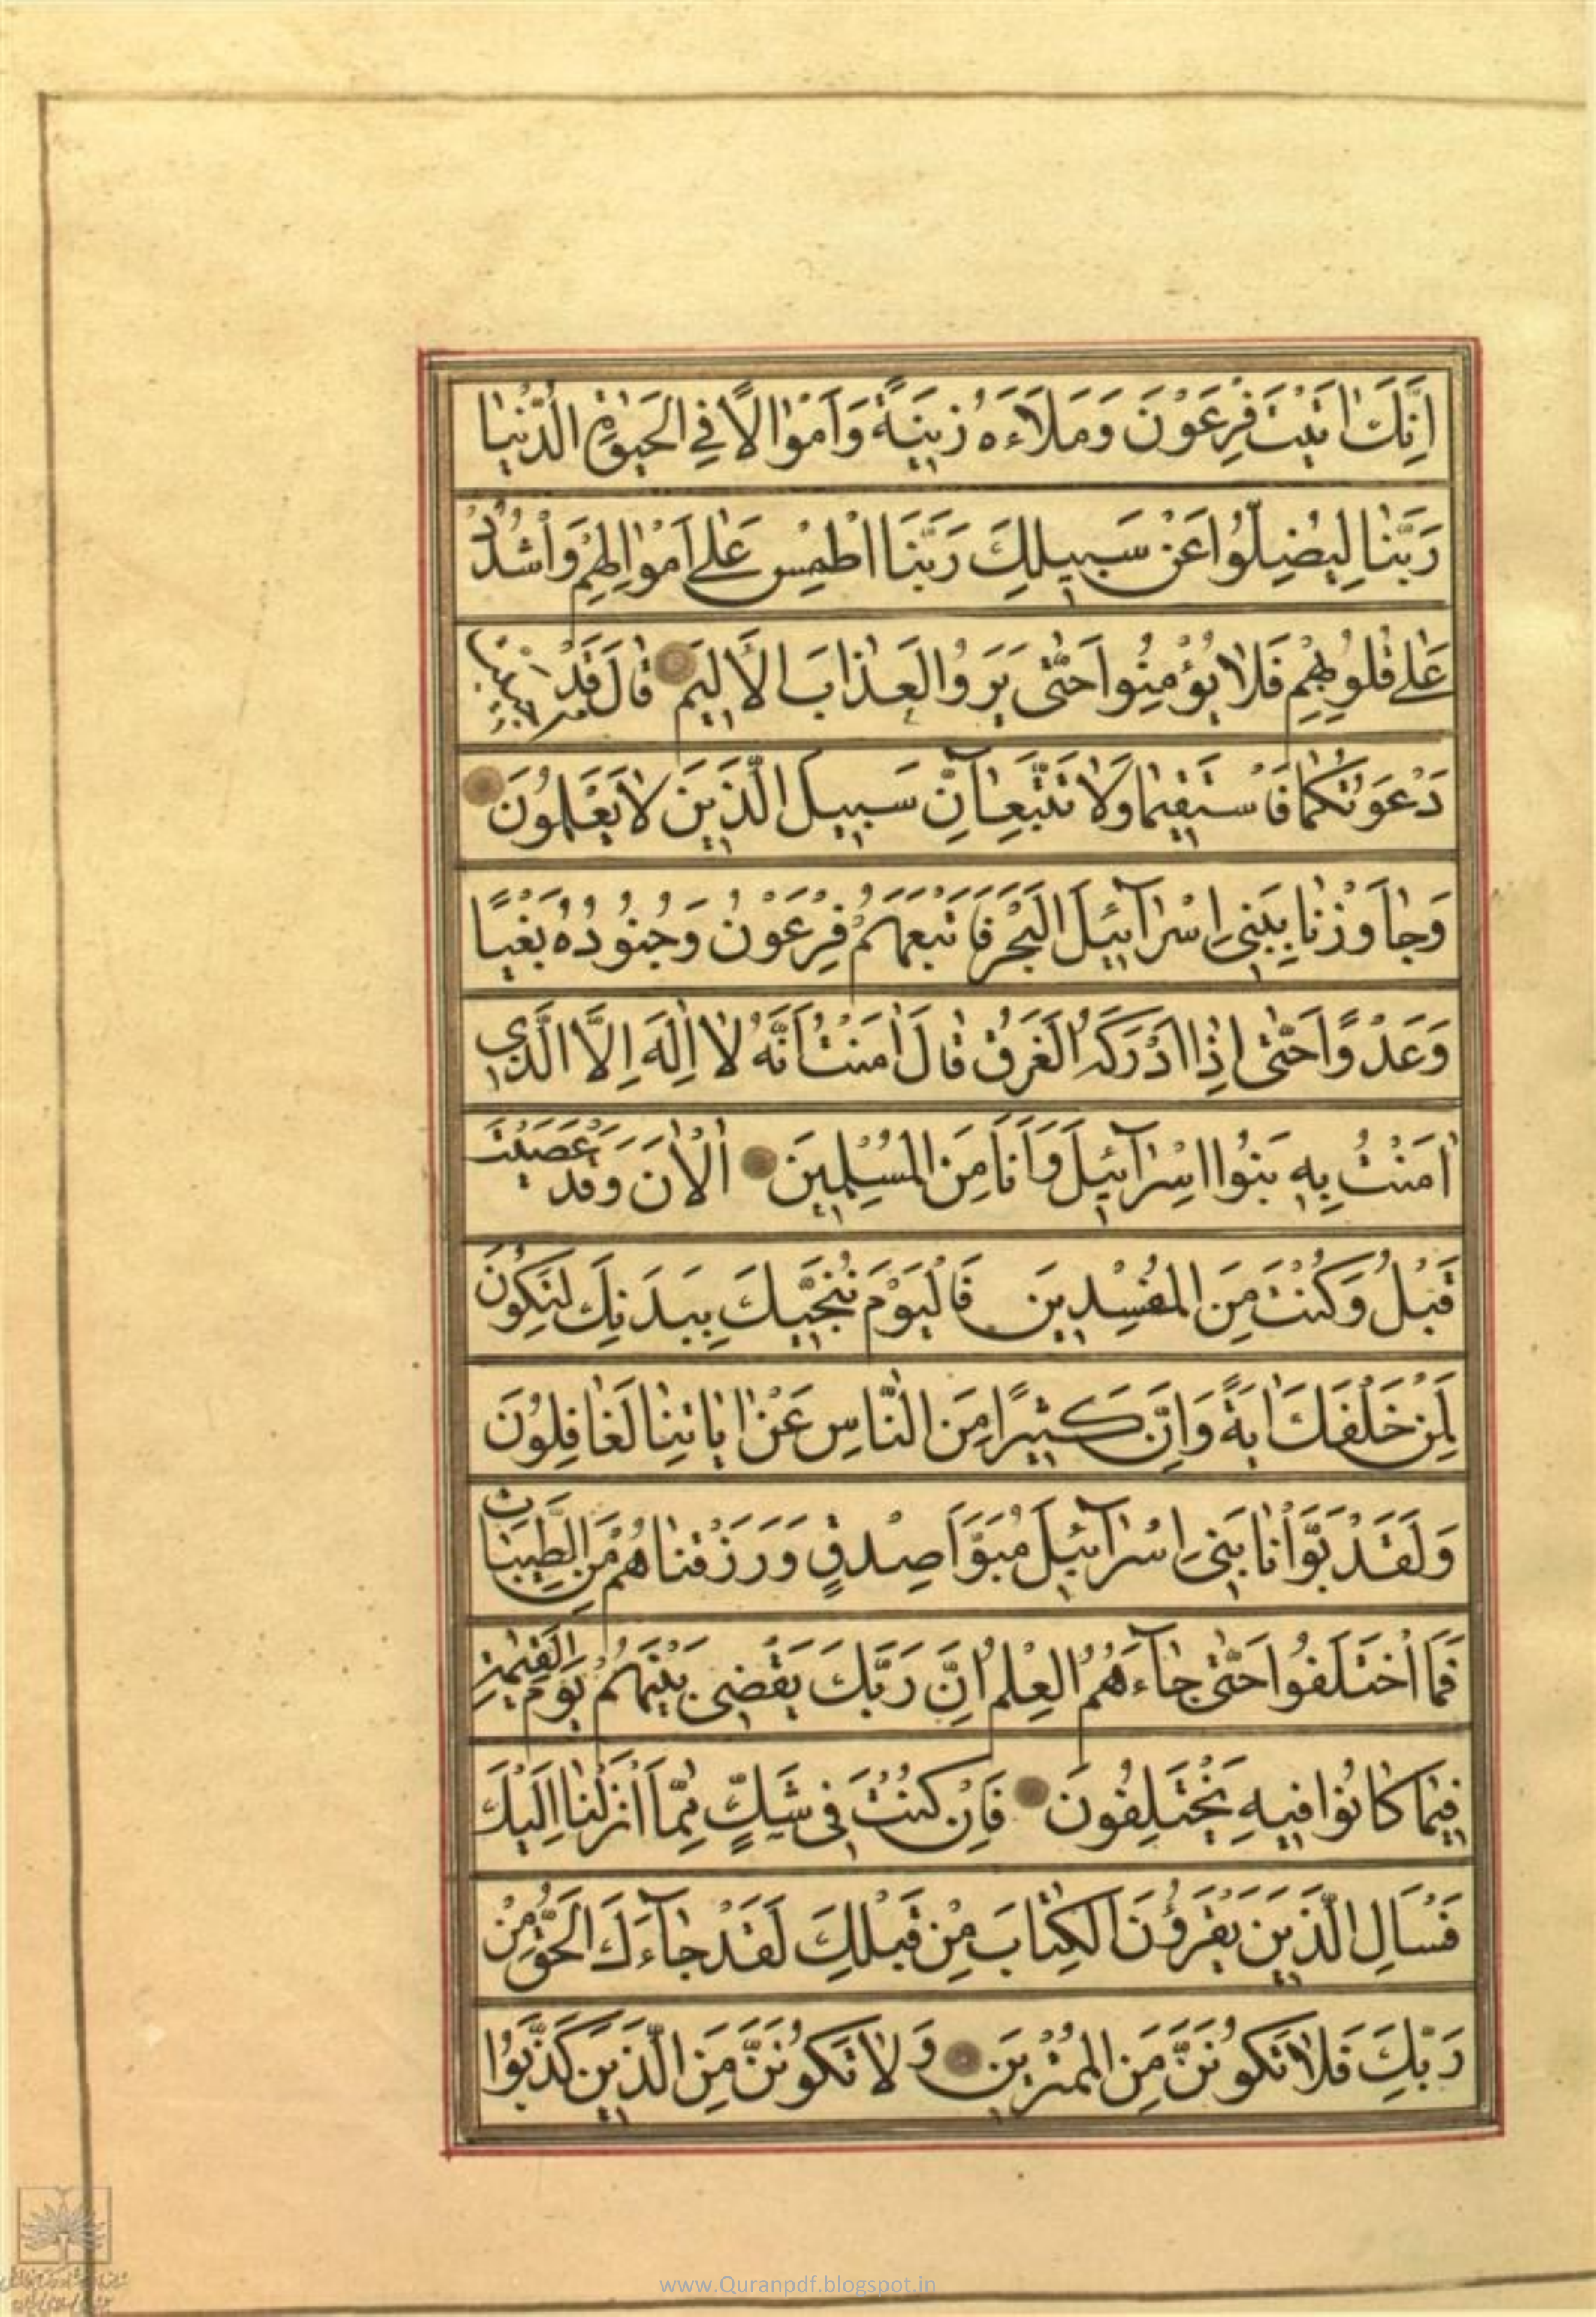 اِنَّكَ اٰتَيْتَ فِرْعَوْنَ وَمَلَاَءَهُ زِينَةً وَاَمْوٰالًا فِي الْحَيٰوةِ الدُّنْيٰا
رَبَّنٰا لِيُضِلُّوا عَنْ سَبِيلِكَ رَبَّنَا اطْمِسْ عَلٰى اَمْوٰالِهِمْ وَاشْدُدْ
عَلٰى قُلُوبِهِمْ فَلٰا يُؤْمِنُوا حَتّٰى يَرَوُا الْعَذٰابَ الْاَلِيمَ قٰالَ قَدْ اُجِيبَتْ
دَعْوَتُكُمٰا فَاسْتَقِيمٰا وَلٰا تَتَّبِعٰٓانِّ سَبِيلَ الَّذِينَ لٰا يَعْلَمُونَ
وَجٰاوَزْنٰا بِبَنِي اِسْرٰٓائِيلَ الْبَحْرَ فَاَتْبَعَهُمْ فِرْعَوْنُ وَجُنُودُهُ بَغْيًا
وَعَدْوًا حَتّٰى اِذٰا اَدْرَكَهُ الْغَرَقُ قٰالَ اٰمَنْتُ اَنَّهُ لٰا اِلٰهَ اِلَّا الَّذِي
اٰمَنَتْ بِهِ بَنُوا اِسْرٰٓائِيلَ وَاَنَا مِنَ الْمُسْلِمِينَ اٰلْاٰنَ وَقَدْ عَصَيْتَ
قَبْلُ وَكُنْتَ مِنَ الْمُفْسِدِينَ فَالْيَوْمَ نُنَجِّيكَ بِبَدَنِكَ لِتَكُونَ
لِمَنْ خَلْفَكَ اٰيَةً وَاِنَّ كَثِيرًا مِنَ النّٰاسِ عَنْ اٰيٰاتِنٰا لَغٰافِلُونَ
وَلَقَدْ بَوَّأْنٰا بَنِي اِسْرٰٓائِيلَ مُبَوَّاَ صِدْقٍ وَرَزَقْنٰاهُمْ مِنَ الطَّيِّبٰاتِ
فَمَا اخْتَلَفُوا حَتّٰى جٰٓاءَهُمُ الْعِلْمُ اِنَّ رَبَّكَ يَقْضِي بَيْنَهُمْ يَوْمَ الْقِيٰمَةِ
فِيمٰا كٰانُوا فِيهِ يَخْتَلِفُونَ فَاِنْ كُنْتَ فِي شَكٍّ مِمّٰا اَنْزَلْنٰا اِلَيْكَ
فَسْـَٔلِ الَّذِينَ يَقْرَؤُنَ الْكِتٰابَ مِنْ قَبْلِكَ لَقَدْ جٰٓاءَكَ الْحَقُّ مِنْ
رَبِّكَ فَلٰا تَكُونَنَّ مِنَ الْمُمْتَرِينَ وَلٰا تَكُونَنَّ مِنَ الَّذِينَ كَذَّبُوا
www.Quranpdf.blogspot.in